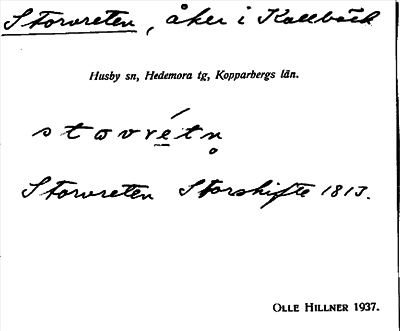 Storvreten, åker i Kallbäck
Husby sn, Hedemora tg, Kopparbergs län.
stovrétn̥
Storvreten Storskifte 1813.
OLLE HILLNER 1937.